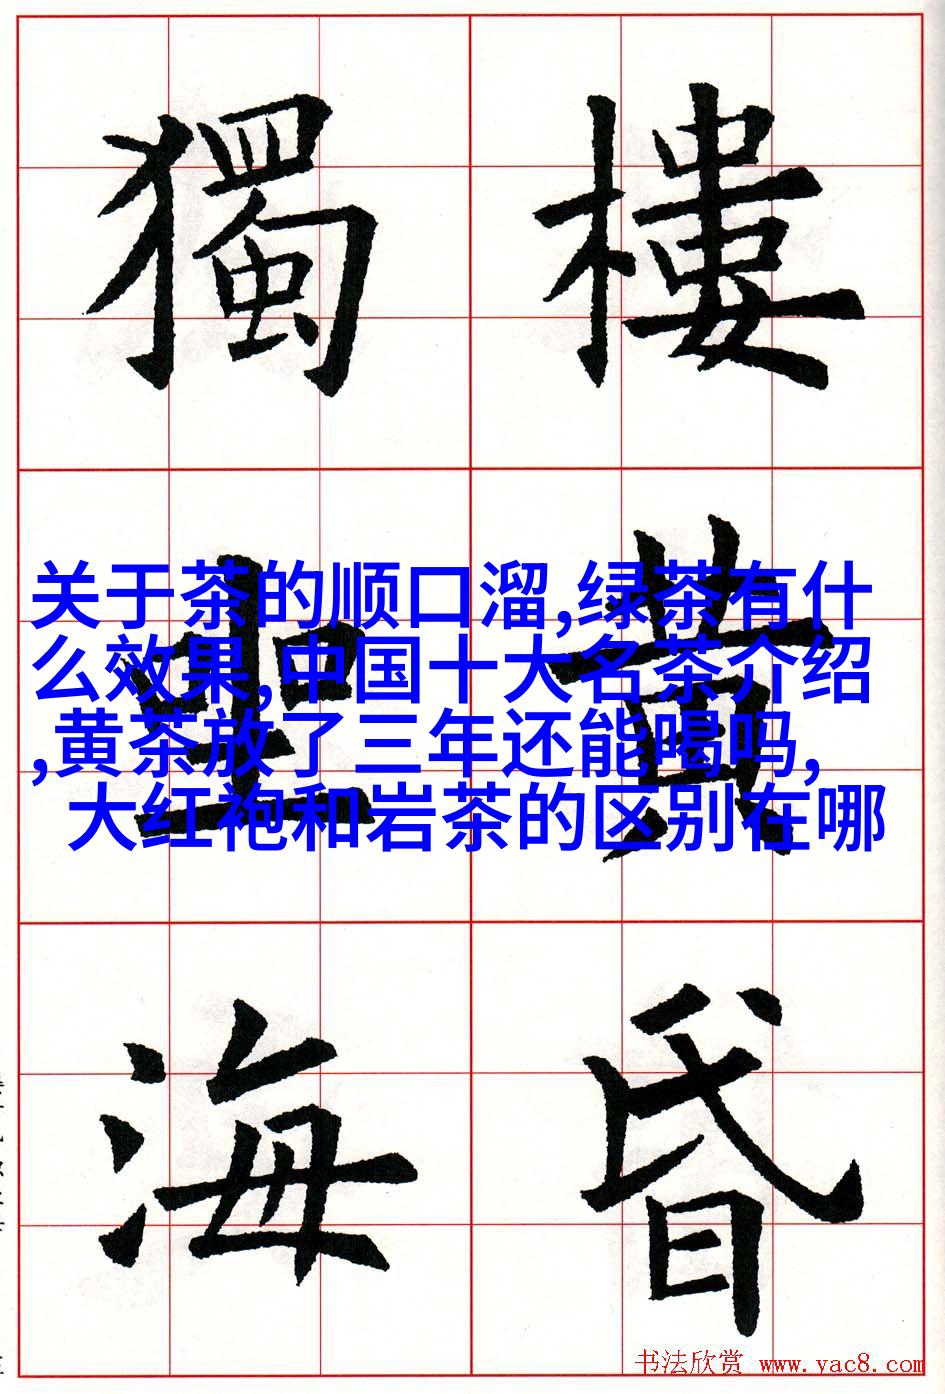 樓黃昏
獨坐海
关于茶的顺口溜,绿茶有什
么效果,中国十大名茶介绍
,黄茶放了三年还能喝吗,
大红袍和岩茶的区别在哪
书法欣赏 www.yac8.com